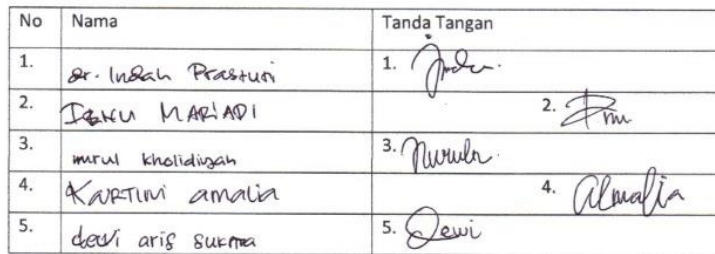 No Nama Tanda Tangan
1. dr. Indah Prastuti 1. Indu
2. IBNU MARIADI 2.
3. nurul kholidiyah 3. Nuruln
4. KARTINI amalia 4. almalia
5. dewi aris sukma 5. Dewi